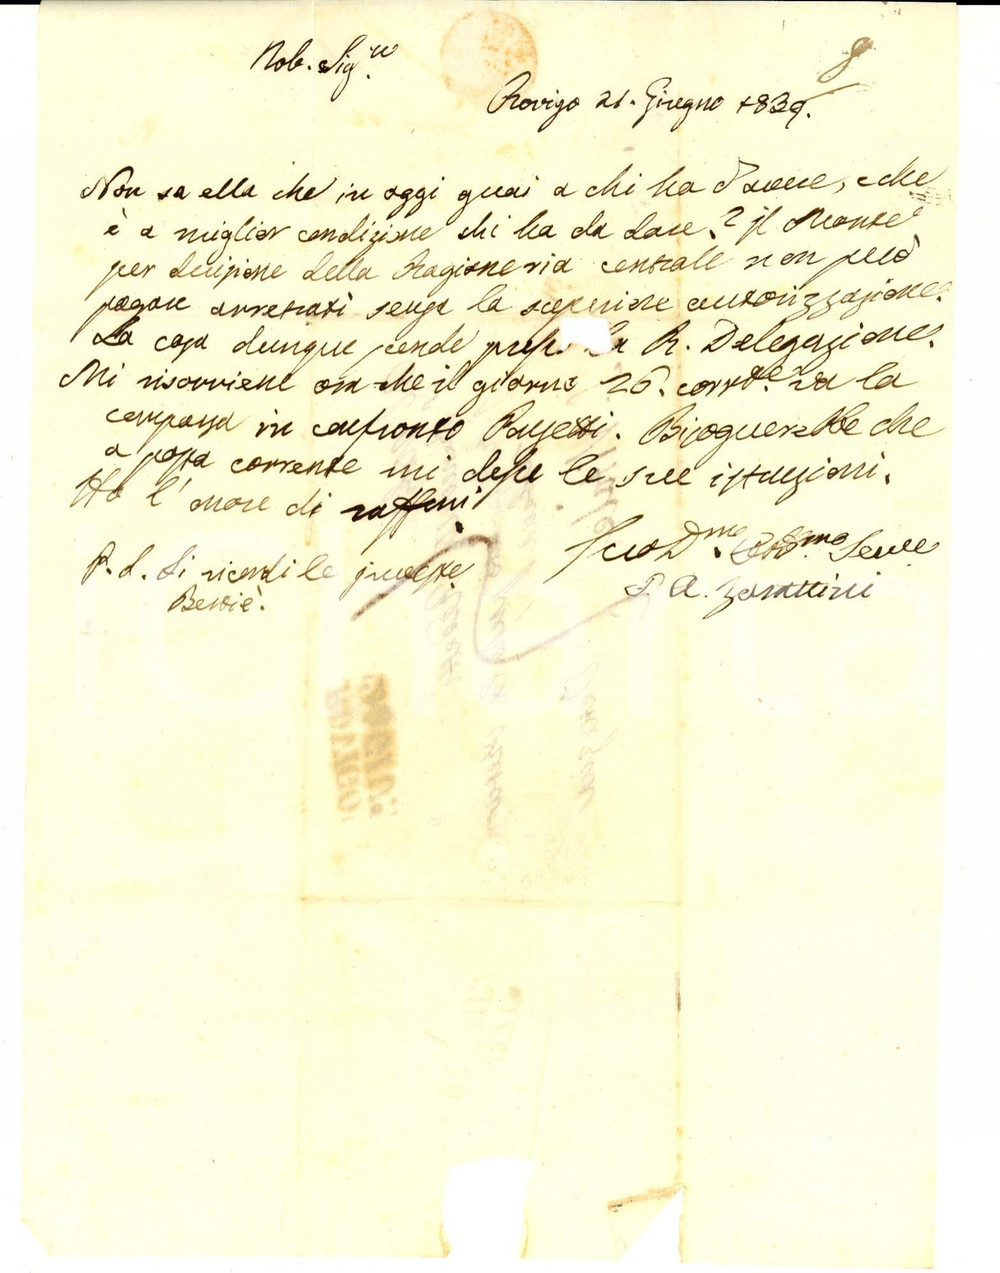 Nob. Sig.re
8
Rovigo 21. Giugno 1839.
Non sa ella che in oggi guai a chi ha d'avere, e che
è a miglior condizione chi ha da dare? Il Monte
per decisione della Ragioneria centrale non può
pagare arretrati senza la superiore autorizzazione.
La cosa dunque pende presso la R. Delegazione.
Mi risovviene ora che il giorno 26. corr.te va la
comparsa in confronto. Bisognerebbe che
a posta corrente mi desse le sue istruzioni.
Ho l'onore di raffermi
Suo D.mo Obb.mo Serve
F. A. Zarattini
P. S. Si ricordi le
ROVIGO